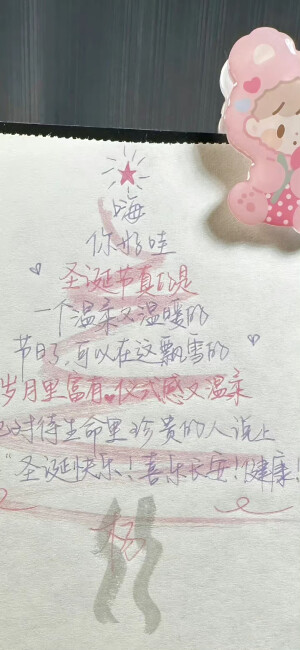 嗨
你好哇
圣诞节真的是
一个温柔又温暖的
节日了,可以在这飘雪的
岁月里富有仪式感又温柔
对待生命里珍贵的人说上
"圣诞快乐!喜乐长安!健康!